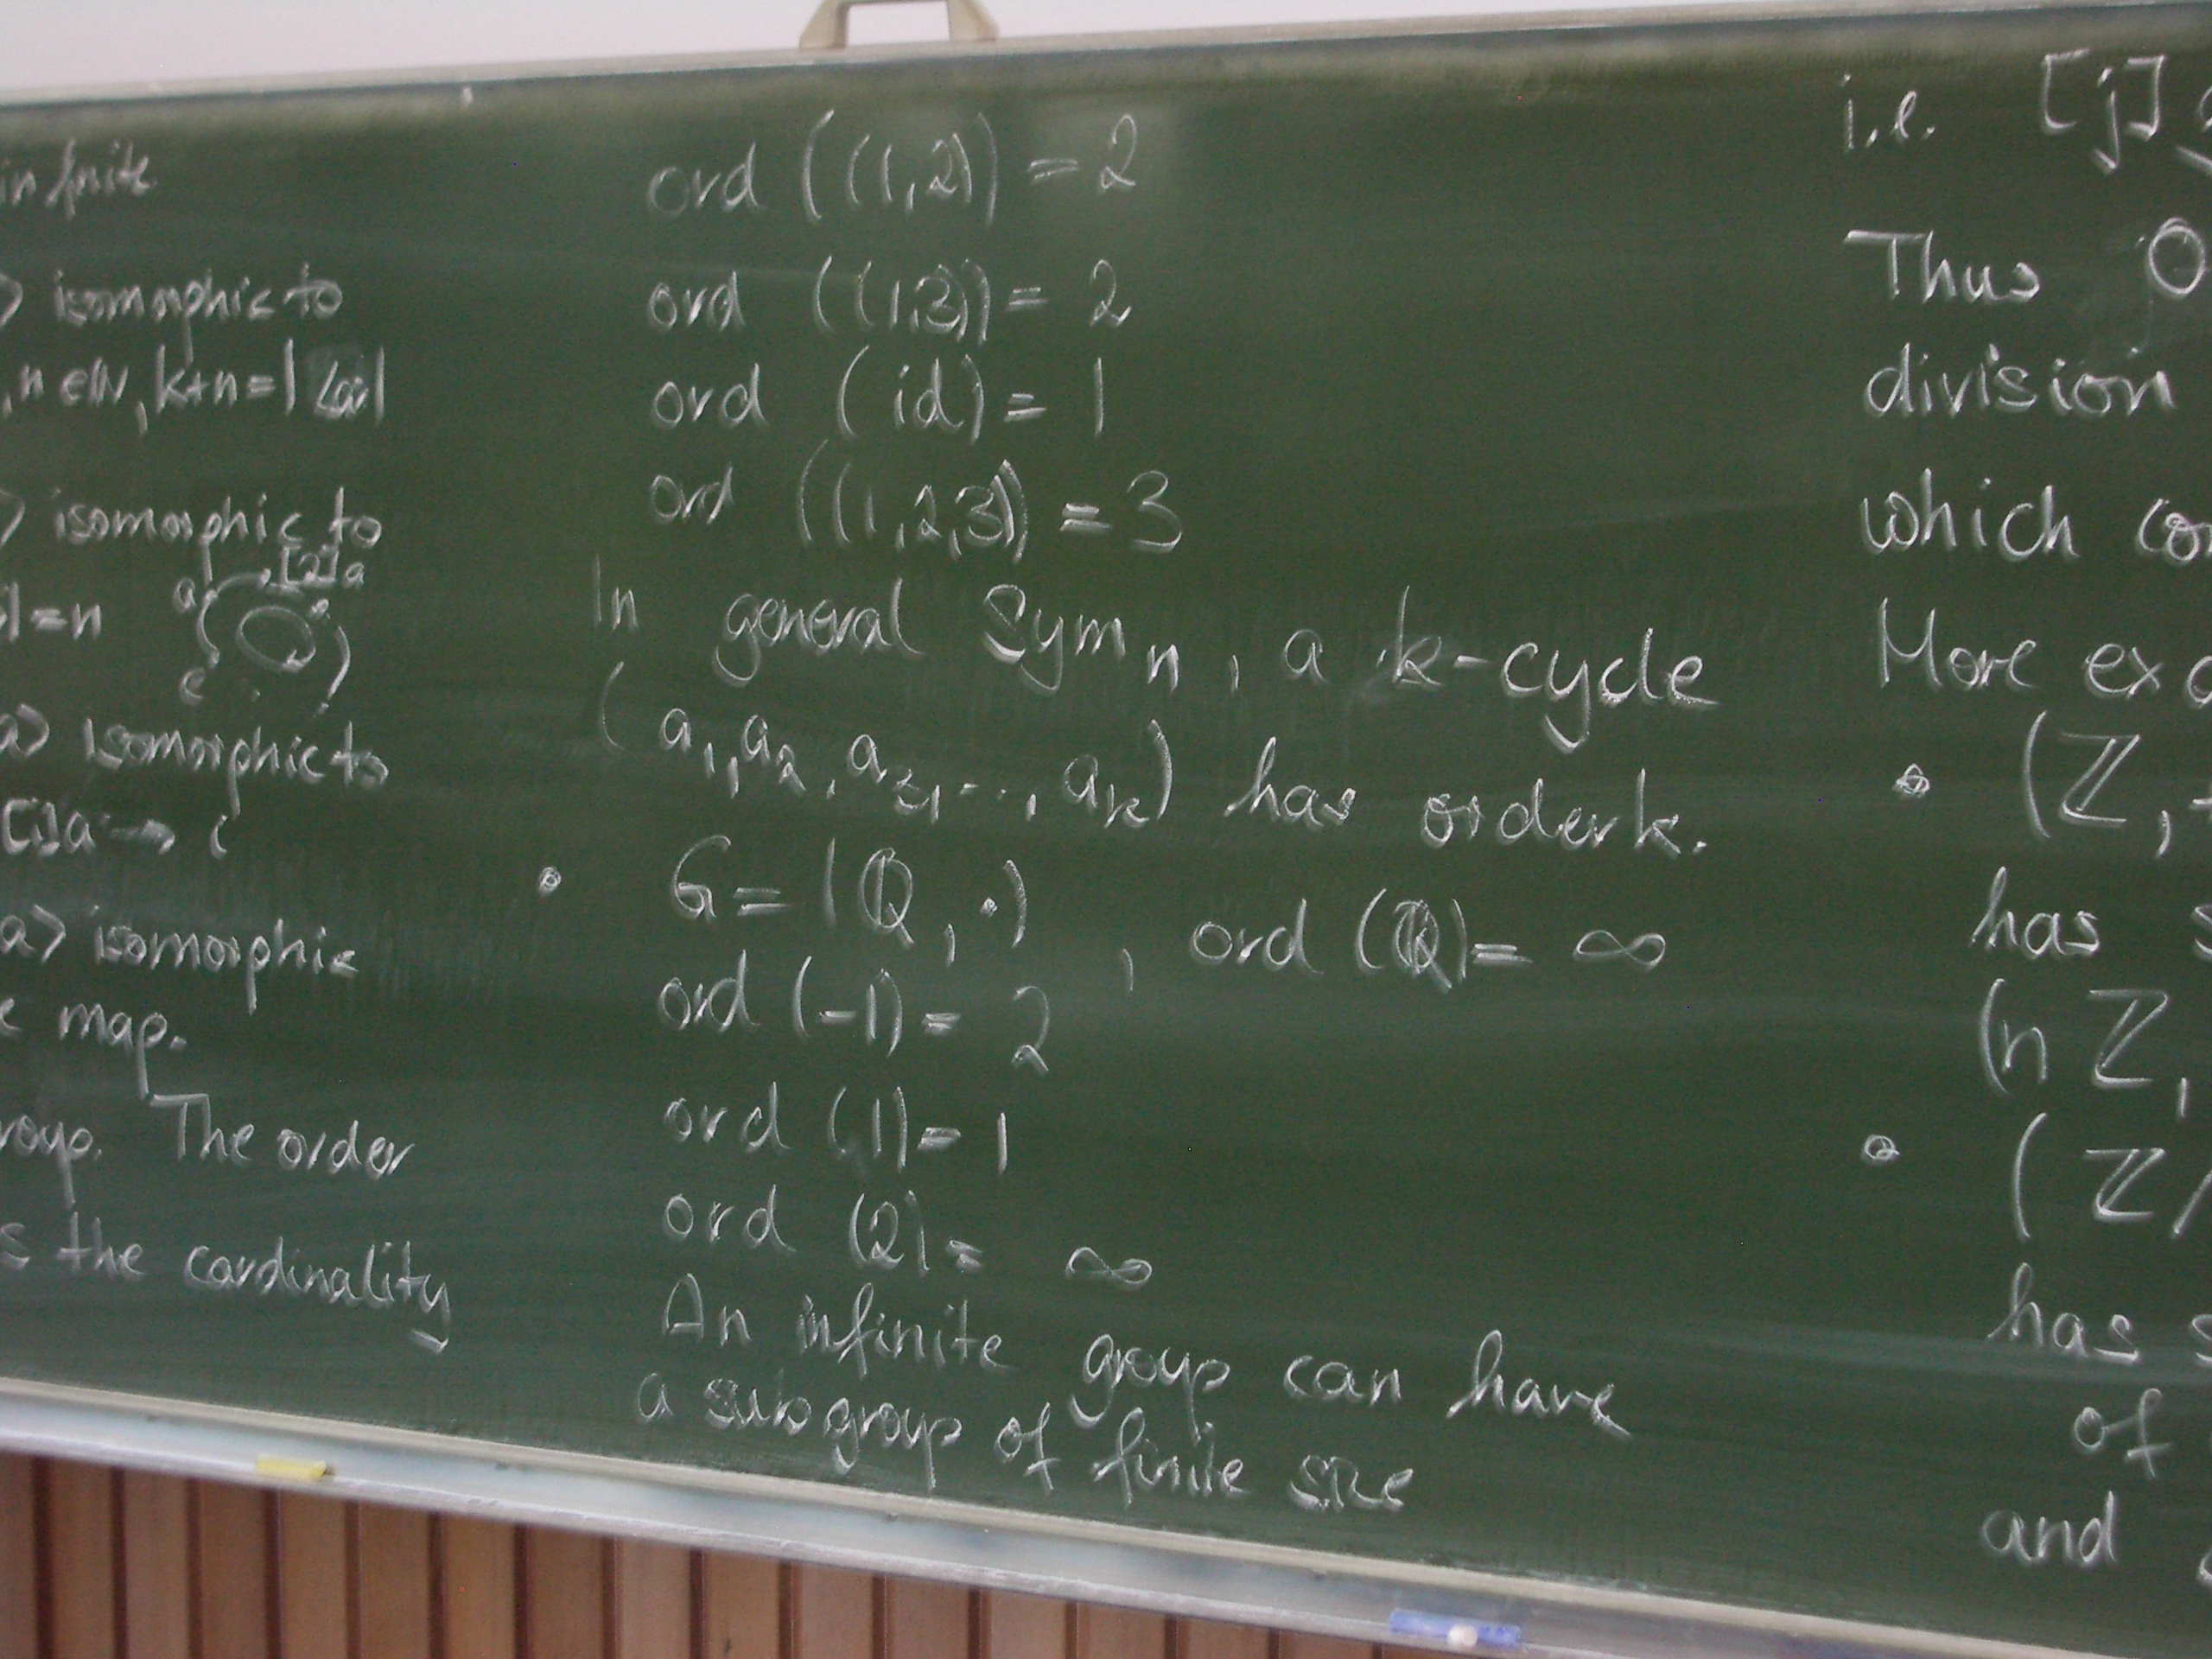 infinite
> isomorphic to
, n ∈ ℕ, k+n = |⟨a⟩|
> isomorphic to
|=n
a [2]a
e
a> isomorphic to
[i]a → i
a> isomorphic
e map.
roup. The order
s the cardinality
ord ((1,2)) = 2
ord ((1,3)) = 2
ord (id) = 1
ord ((1,2,3)) = 3
In general Sym_n, a k-cycle
(a_1, a_2, a_3, ..., a_k) has order k.
• G = (ℚ, ·), ord (ℚ) = ∞
ord (-1) = 2
ord (1) = 1
ord (2) = ∞
An infinite group can have
a subgroup of finite size
i.e. [j]
Thus
division
which
More
• (ℤ,
has
(nℤ,
• (ℤ/
has
of
and